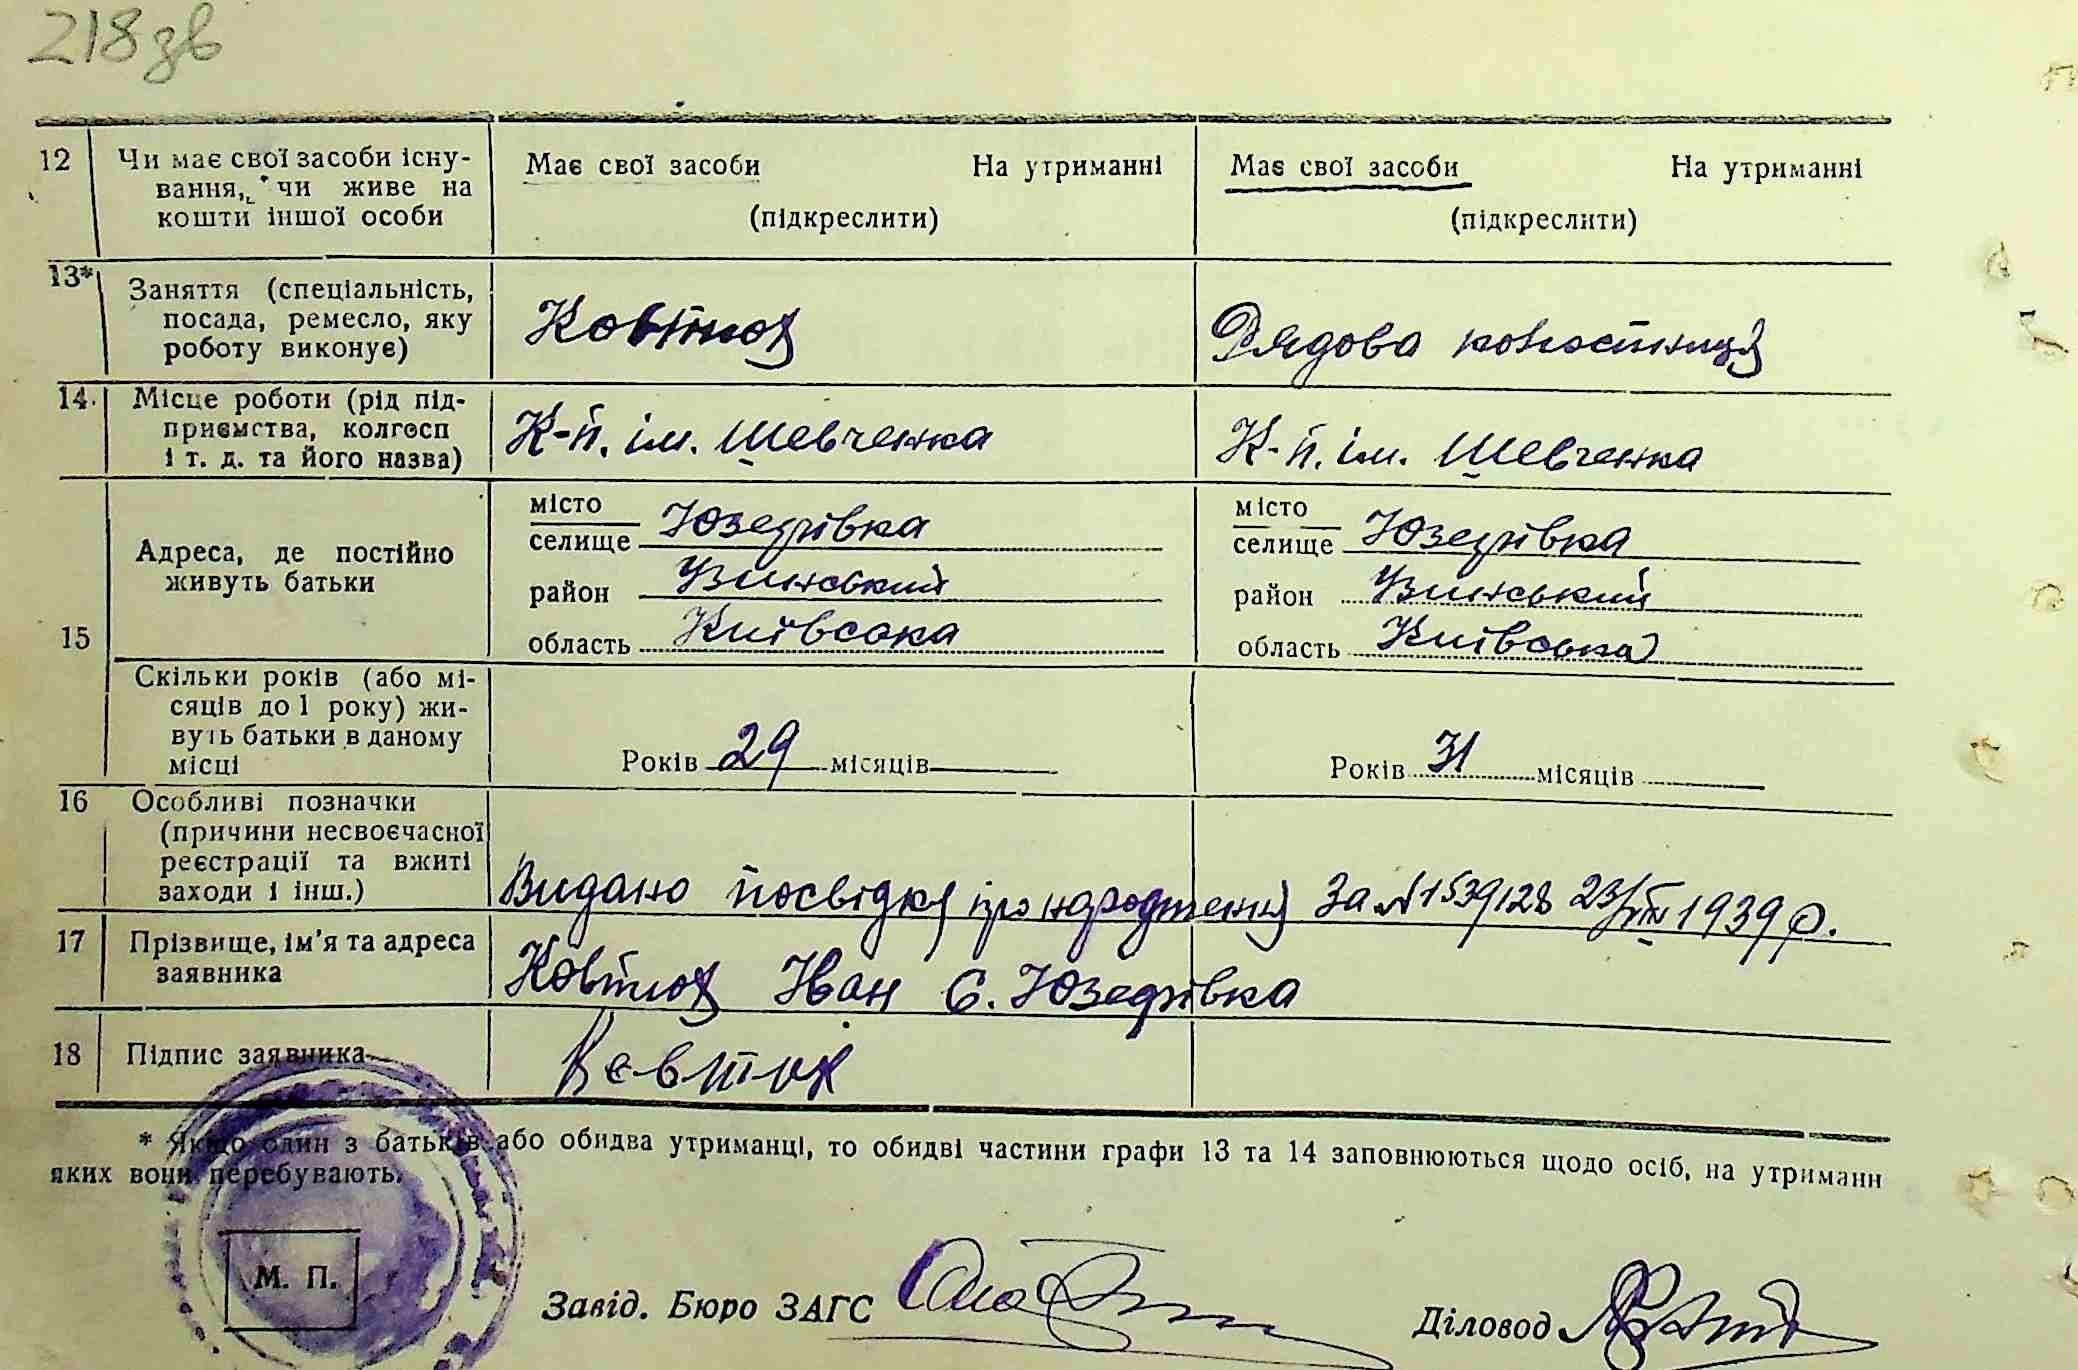 218 зв
12 Чи має свої засоби існу- Має свої засоби На утриманні Має свої засоби На утриманні
вання, чи живе на
кошти іншої особи (підкреслити) (підкреслити)
13* Заняття (спеціальність,
посада, ремесло, яку Ковтюх Рядова колгоспниця
роботу виконує)
14. Місце роботи (рід під-
приємства, колгосп К-п. ім. Шевченка К-п. ім. Шевченка
і т. д. та його назва)
місто місто
селище Юзефівка селище Юзефівка
Адреса, де постійно
живуть батьки район Узинський район Узинський
15 область Київська область Київська
Скільки років (або мі-
сяців до 1 року) жи-
вуть батьки в даному
місці Років 29 місяців Років 31 місяців
16 Особливі позначки
(причини несвоєчасної
реєстрації та вжиті
заходи і інш.) Видано посвідку про народження За № 1539128 23/VIII 1939 р.
17 Прізвище, ім'я та адреса
заявника Ковтюх Іван С. Юзефівка
18 Підпис заявника Ковтюх
* Якщо один з батьків або обидва утриманці, то обидві частини графи 13 та 14 заповнюються щодо осіб, на утриманн
яких вони перебувають.
М. П.
Завід. Бюро ЗАГС Діловод